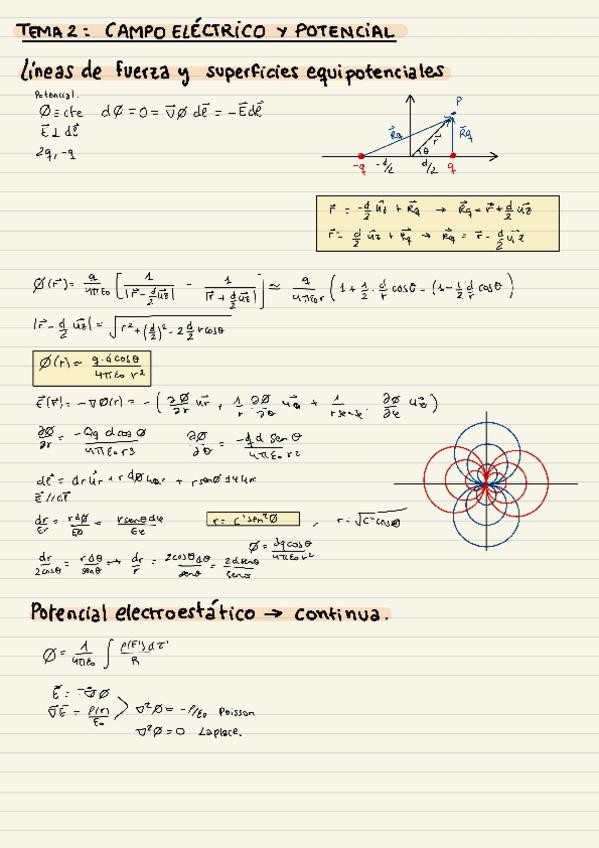 TEMA 2: CAMPO ELÉCTRICO Y POTENCIAL
líneas de fuerza y superficies equipotenciales
Potencial.
Ø ≡ cte dØ = 0 = ∇⃗Ø dℓ⃗ = -E⃗dℓ⃗
E⃗ ⊥ dℓ⃗
2q, -q
P
R⃗q r⃗ R⃗q
θ
-q -d/2 d/2 q
r⃗ = -d/2 u⃗z + R⃗q → R⃗q = r⃗ + d/2 u⃗z
r⃗ = d/2 u⃗z + R⃗q → R⃗q = r⃗ - d/2 u⃗z
Ø(r⃗) = q/4πε₀ [1/|r⃗ - d/2 u⃗z| - 1/|r⃗ + d/2 u⃗z|] ≈ q/4πε₀r (1 + 1/2 · d/r cosθ - (1 - 1/2 d/r cosθ)
|r⃗ - d/2 u⃗z| = √r² + (d/2)² - 2 d/2 r cosθ
Ø(r) ≈ q·d cosθ/4πε₀ r²
E⃗(r⃗) = -∇Ø(r) = -(∂Ø/∂r u⃗r + 1/r ∂Ø/∂θ u⃗θ + 1/r senθ · ∂Ø/∂φ u⃗φ)
∂Ø/∂r = -2q d cosθ/4πε₀r³ ∂Ø/∂θ = -q d senθ/4πε₀r²
dℓ⃗ = dr u⃗r + r dθ
E⃗ // dℓ⃗
dr/Er = r dθ/Eθ = r senθ dφ/Eφ r = C' sen²θ , r = √C'' cosθ
Ø = dq cosθ/4πε₀r²
dr/2cosθ = r dθ/senθ → dr/r = 2cosθ dθ/senθ = 2d senθ/senθ
Potencial electroestático → continua.
Ø = 1/4πε₀ ∫ ρ(r⃗') dτ'/R
E⃗ = -∇⃗Ø
∇⃗E⃗ = ρ(r)/ε₀ > ∇²Ø = -ρ/ε₀ Poisson
∇²Ø = 0 Laplace.